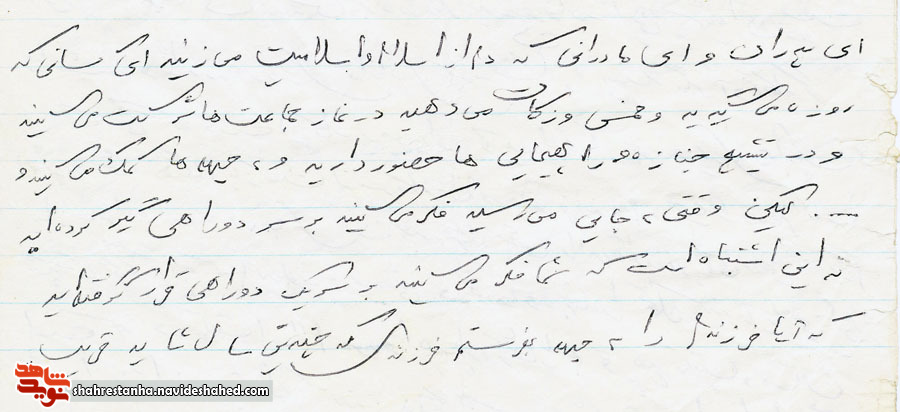 ای پدران و ای مادرانی که دم از اسلام و اسلامیت می زنید ای کسانی که
روزه می گیرید و خمس و زکات می دهید در نماز جماعت ها شرکت می کنید
و در تشییع جنازه و راهپیمایی ها حضور دارید و به جبهه ها کمک می کنید و
..... لیکن وقتی به جایی می رسید فکر می کنید بر سر دو راهی گیر کرده اید
نه این اشتباه است که شما فکر می کنید بر سر یک دو راهی قرار گرفته اید
که آیا فرزندم را به جبهه بفرستم فرزندی که چندین سال شاید قریب
نوید شاهد
shahrestanha.navideshahed.com